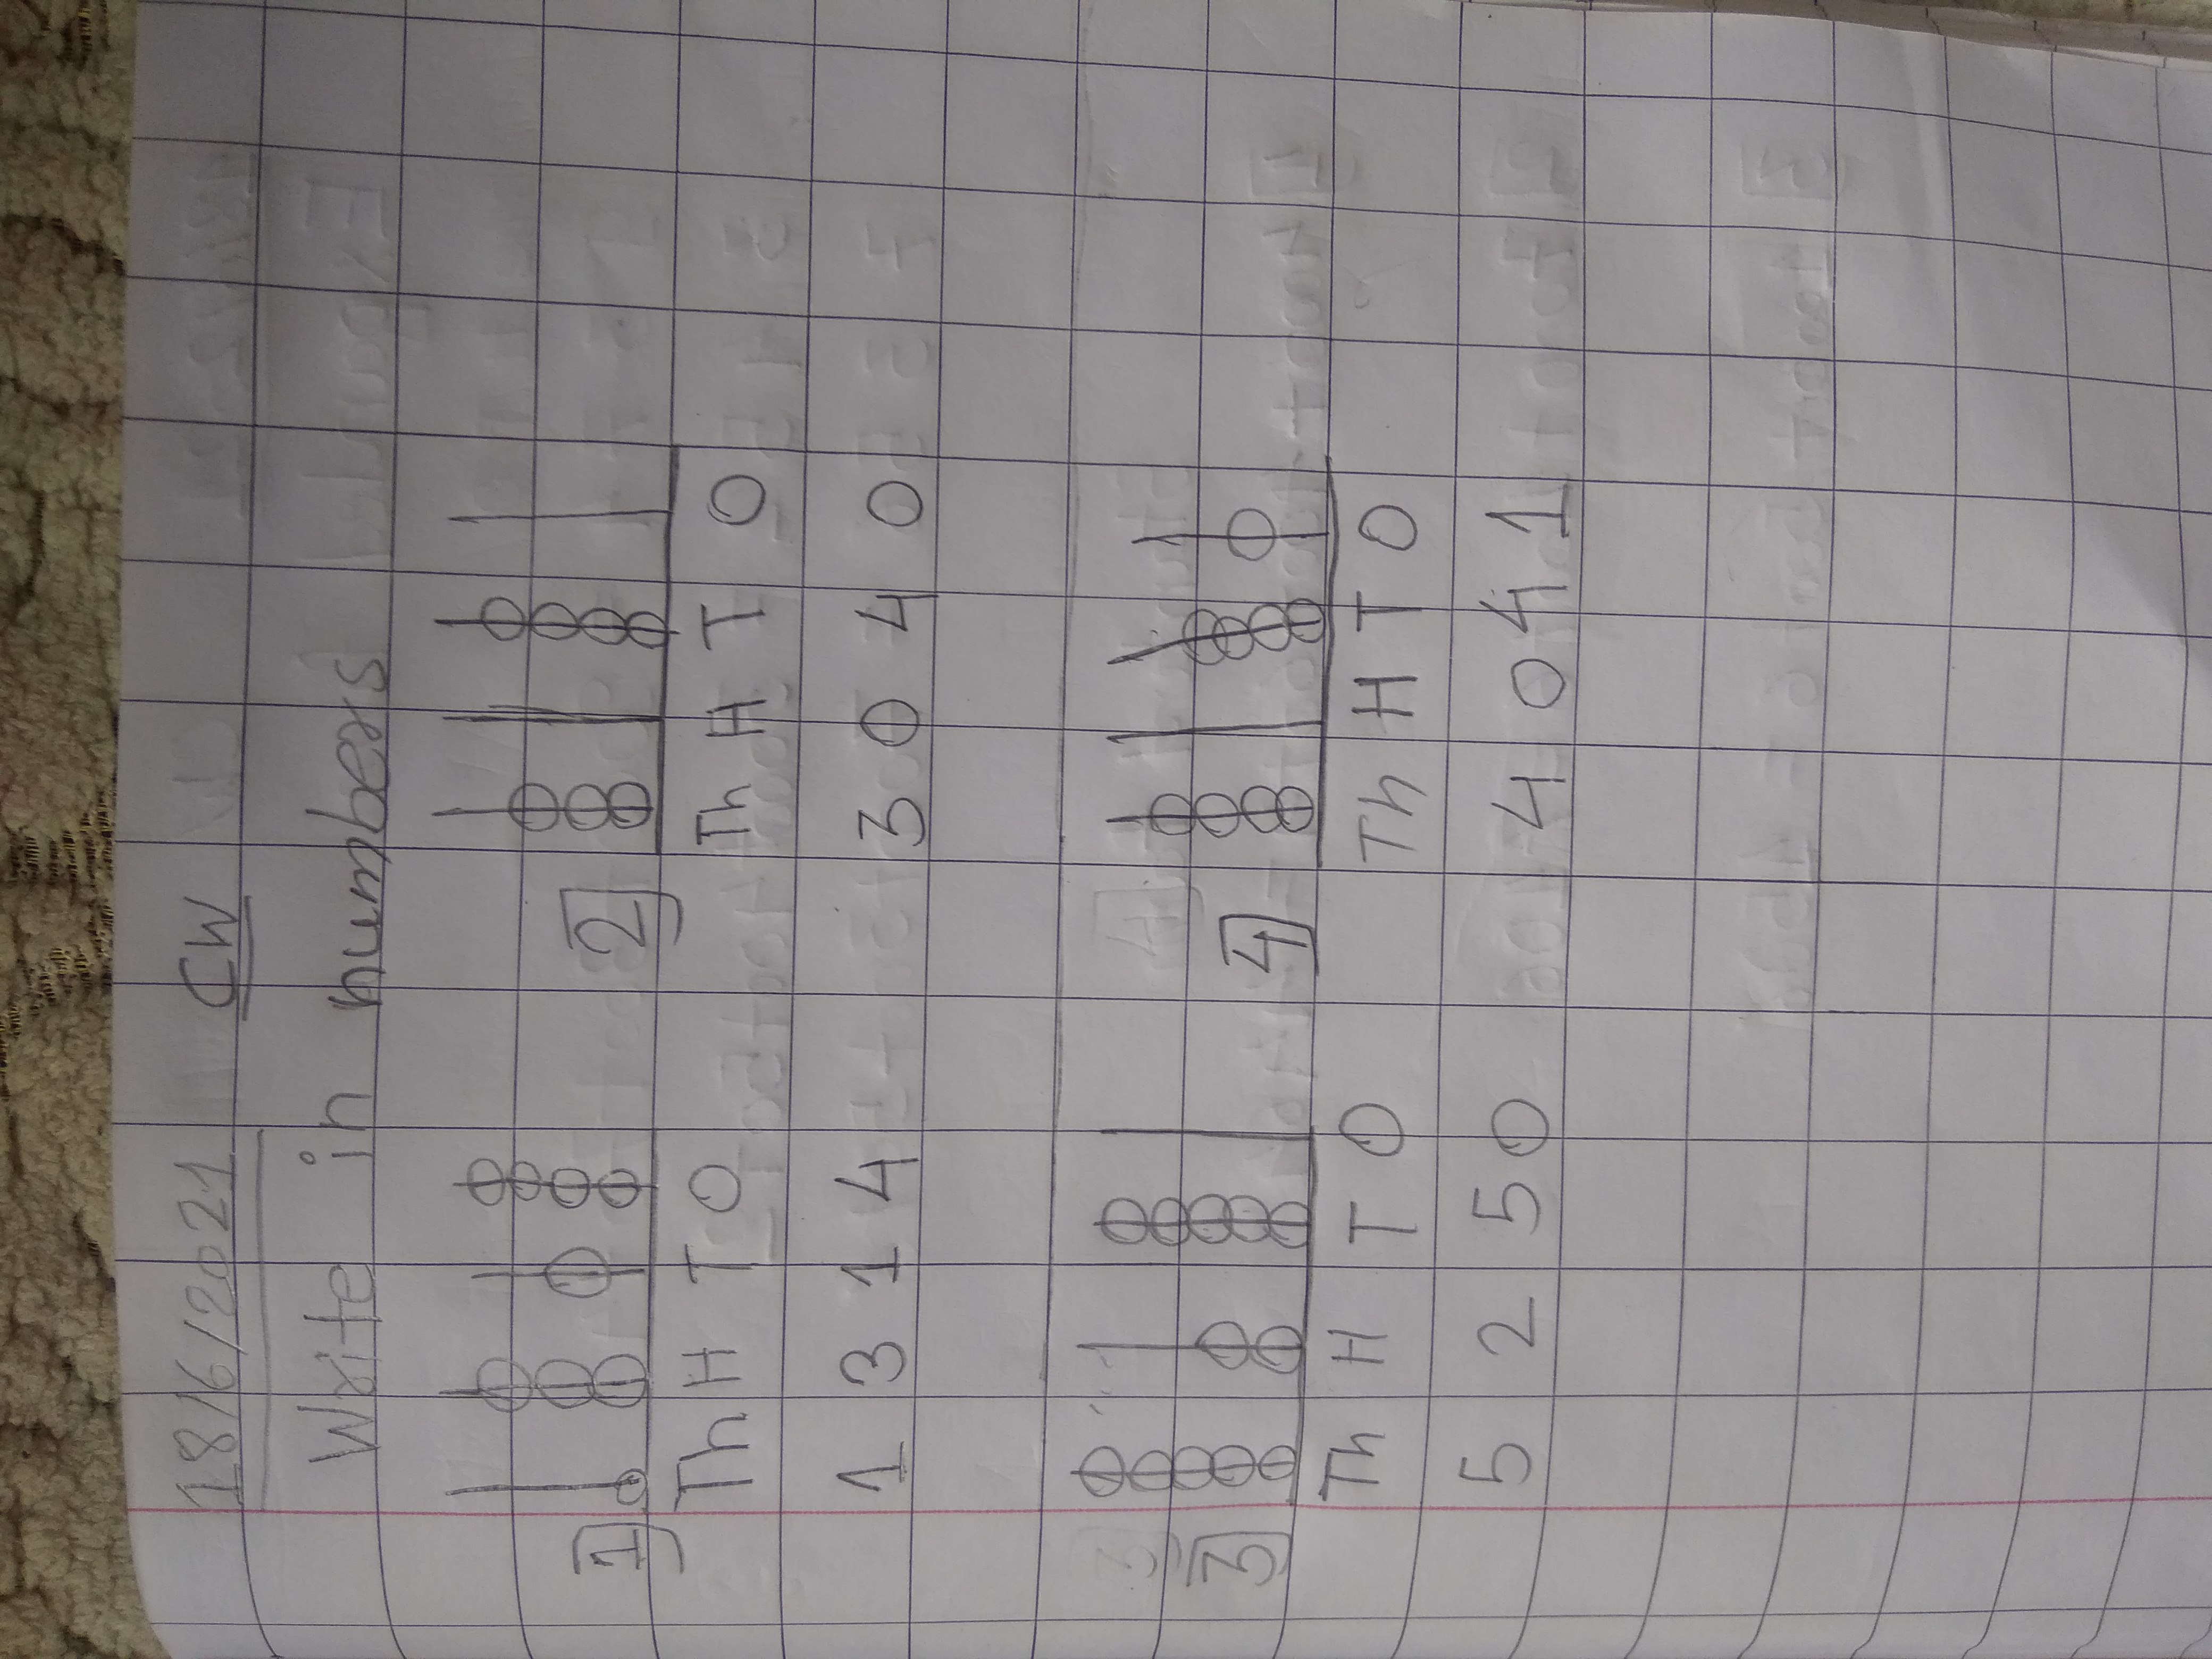 18/6/2021 CW
Write in numbers
1 2
Th H T O Th H T O
1 3 1 4 3 0 4 0
3 4
Th H T O Th H T O
5 2 5 0 4 0 4 1